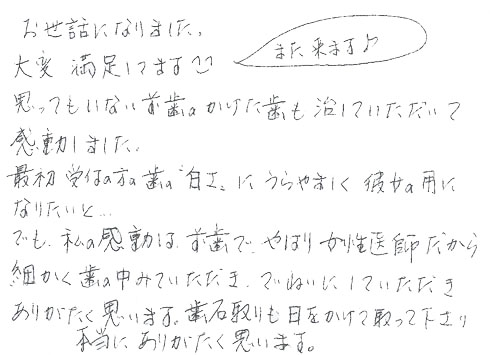 お世話になりました。
大変 満足してます
また来ます♪
思ってもいない前歯のかけた歯も治していただいて
感動しました。
最初 受付の方の歯の〝白さ〟にうらやましく 彼女の用に
なりたいと…
でも、私の感動は、前歯で、やはり女性医師だから
細かく歯の中みていただき、ていねいにしていただき
ありがたく思います。歯石取りも日をかけて取って下さり
本当にありがたく思います。